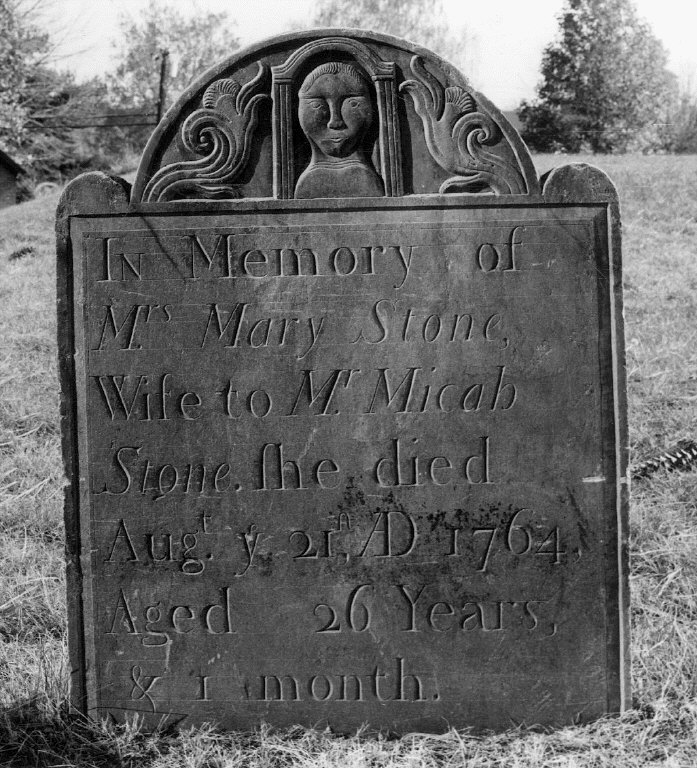 In Memory of
Mrs Mary Stone,
Wife to Mr. Micah
Stone. ſhe died
Augt. y. 21n, AD 1764,
Aged 26 Years,
& 1 month.